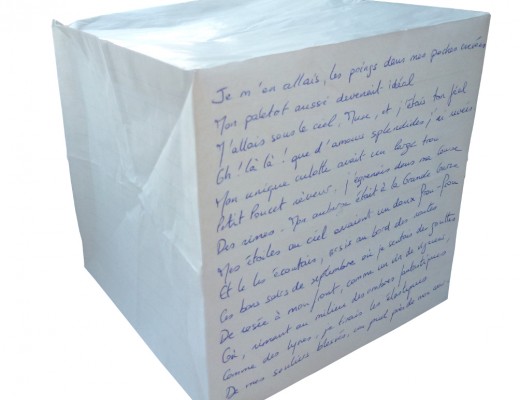 Je m'en allais, les poings dans mes poches crevées
Mon paletot aussi devenait idéal
J'allais sous le ciel, Muse, et j'étais ton féal
Oh ! là là ! que d'amours splendides j'ai rêvées
Mon unique culotte avait un large trou
Petit Poucet rêveur, j'égrenais dans ma course
Des rimes. Mon auberge était à la Grande Ourse
Mes étoiles au ciel avaient un doux frou-frou
Et je les écoutais, assis au bord des routes
Ces bons soirs de septembre où je sentais des gouttes
De rosée à mon front, comme un vin de vigueur,
Où, rimant au milieu des ombres fantastiques
Comme des lyres, je tirais les élastiques
De mes souliers blessés, un pied près de mon cœur